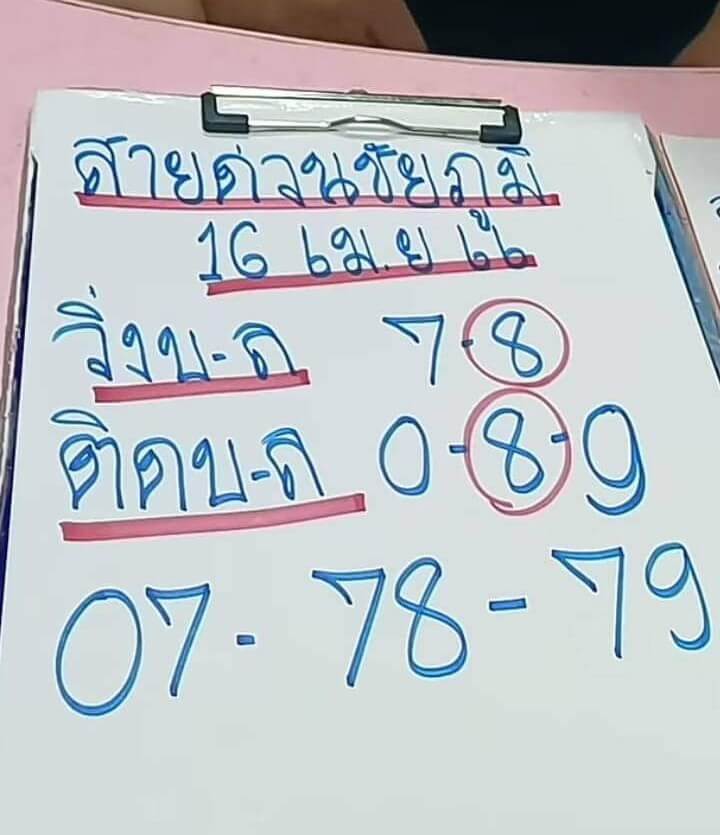 สายด่วนชัยภูมิ
16 เม.ย
วิ่งบ-ล 7-8
ติดบ-ล 0-8-9
07-78-79